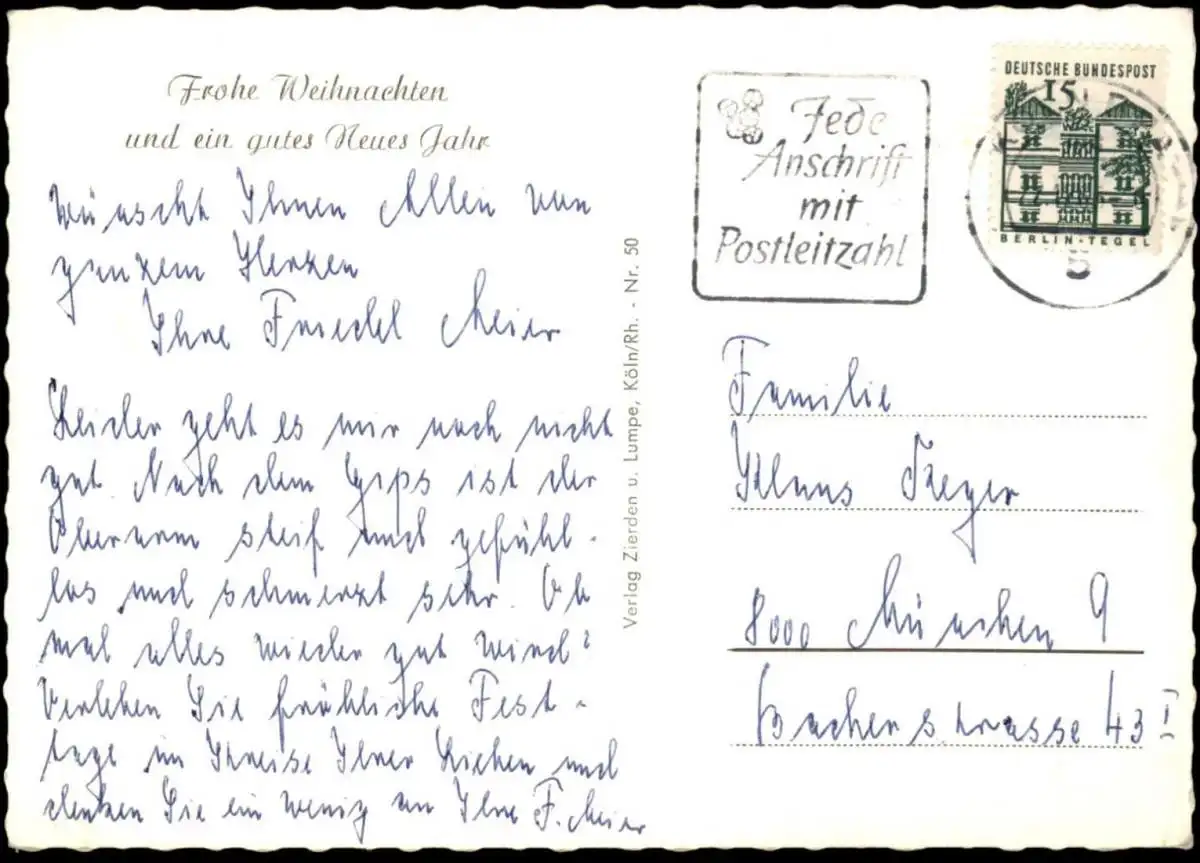 Frohe Weihnachten
und ein gutes Neues Jahr
wünscht Ihnen Allen von
ganzem Herzen
Ihre Friedel Meier
Leider geht es mir noch nicht
gut. Nach dem Gips ist der
Oberarm steif und gefühl-
los und schmerzt sehr. Ob
mal alles wieder gut wird?
Verleben Sie fröhliche Fest-
tage im Kreise Ihrer Lieben und
denken Sie ein wenig an Ihre F. Meier
Verlag Zierden u. Lumpe, Köln/Rh. - Nr. 50
Jede
Anschrift
mit
Postleitzahl
DEUTSCHE BUNDESPOST
15
BERLIN-TEGEL
Familie
Klaus
8000 München 9
strasse 43 I